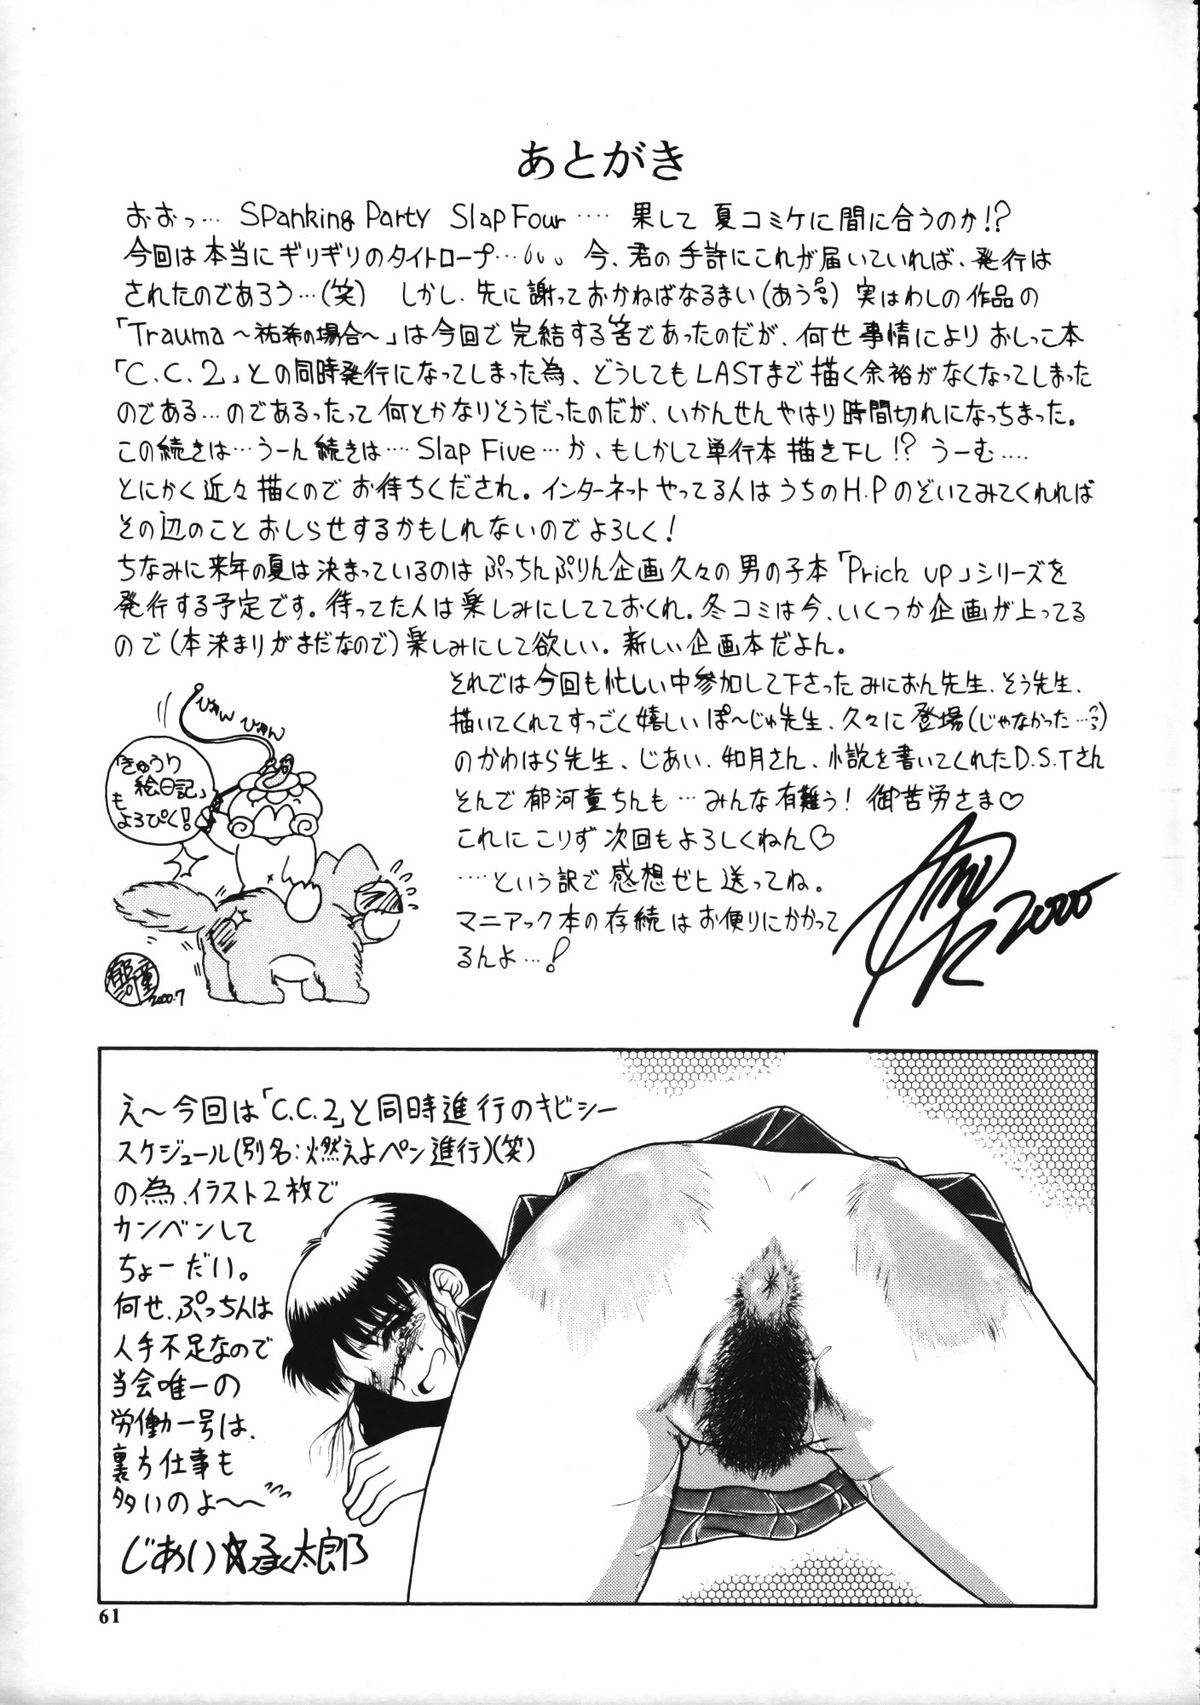 あとがき
おおっ… Spanking Party Slap Four …‥ 果して 夏コミケに間に合うのか!?
今回は本当にギリギリのタイトロープ… 今、君の手許にこれが届いていれば、発行は
されたのであろう…(笑) しかし、先に謝っておかねばなるまい(あうぅ) 実はわしの作品の
「Trauma～祐希の場合～」は今回で完結する筈であったのだが、何せ事情によりおしっこ本
「C.C.2」との同時発行になってしまった為、どうしてもLASTまで描く余裕がなくなってしまった
のである…のであるったって何とかなりそうだったのだが、いかんせんやはり時間切れになっちまった。
この続きは…うーん続きは…‥Slap Five…か、もしかして単行本描き下し!? うーむ…‥
とにかく近々描くのでお待ちくだされ。インターネットやってる人はうちのH.Pのぞいてみてくれれば
その辺のことおしらせするかもしれないのでよろしく!
ちなみに来年の夏は決まっているのはぷっちんぷりん企画久々の男の子本「Prich up」シリーズを
発行する予定です。待ってた人は楽しみにしてておくれ。冬コミは今、いくつか企画が上ってる
ので(本決まりがまだなので)楽しみにして欲しい。新しい企画本だよん。
それでは今回も忙しい中参加して下さったみにおん先生、そう先生、
描いてくれてすっごく嬉しいぽ～じゅ先生、久々に登場(じゃなかった…??)
のかわはら先生、じあい、如月さん、小説を書いてくれたD.S.Tさん
そんで郁河童ちんも…みんな有難う!御苦労さま♡
これにこりず次回もよろしくねん♡
…‥という訳で感想ゼヒ送ってね。
マニアック本の存続はお便りにかかって
るんよ…!
2000
ぴゅん
ぴゅん
「きゅうり
絵日記」
も
よろぴく!
郁河童
2000.7
え～今回は「C.C.2」と同時進行のキビシー
スケジュール(別名:燃えよペン進行)(笑)
の為、イラスト2枚で
カンベンして
ちょーだい。
何せ、ぷっちんは
人手不足なので
当会唯一の
労働一号は、
裏方仕事も
多いのよ～～
じあい☆承太郎
61